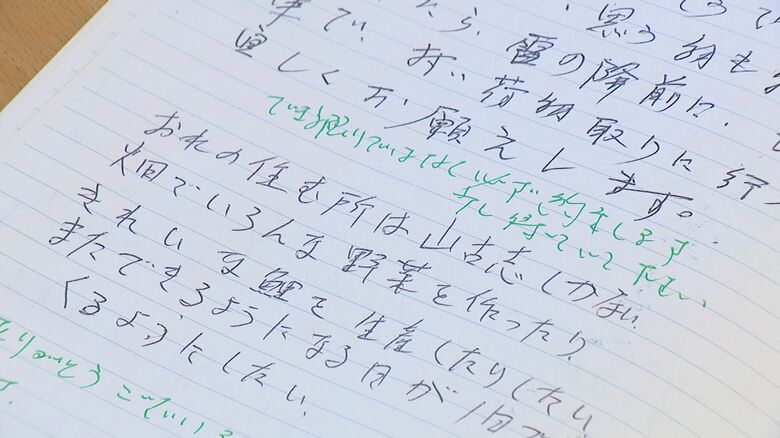 思う物も
たら、雪の降前に、
車で、すい荷物取りに行
宜しくお願えします。
必ず約束します
待っていて下さい
おれの住む所は山古志しかない
畑でいろんな野菜を作ったり、
きれいな鯉を生産したりしたい
またできるようになる日が
くるようにしたい
ありがとうございいる